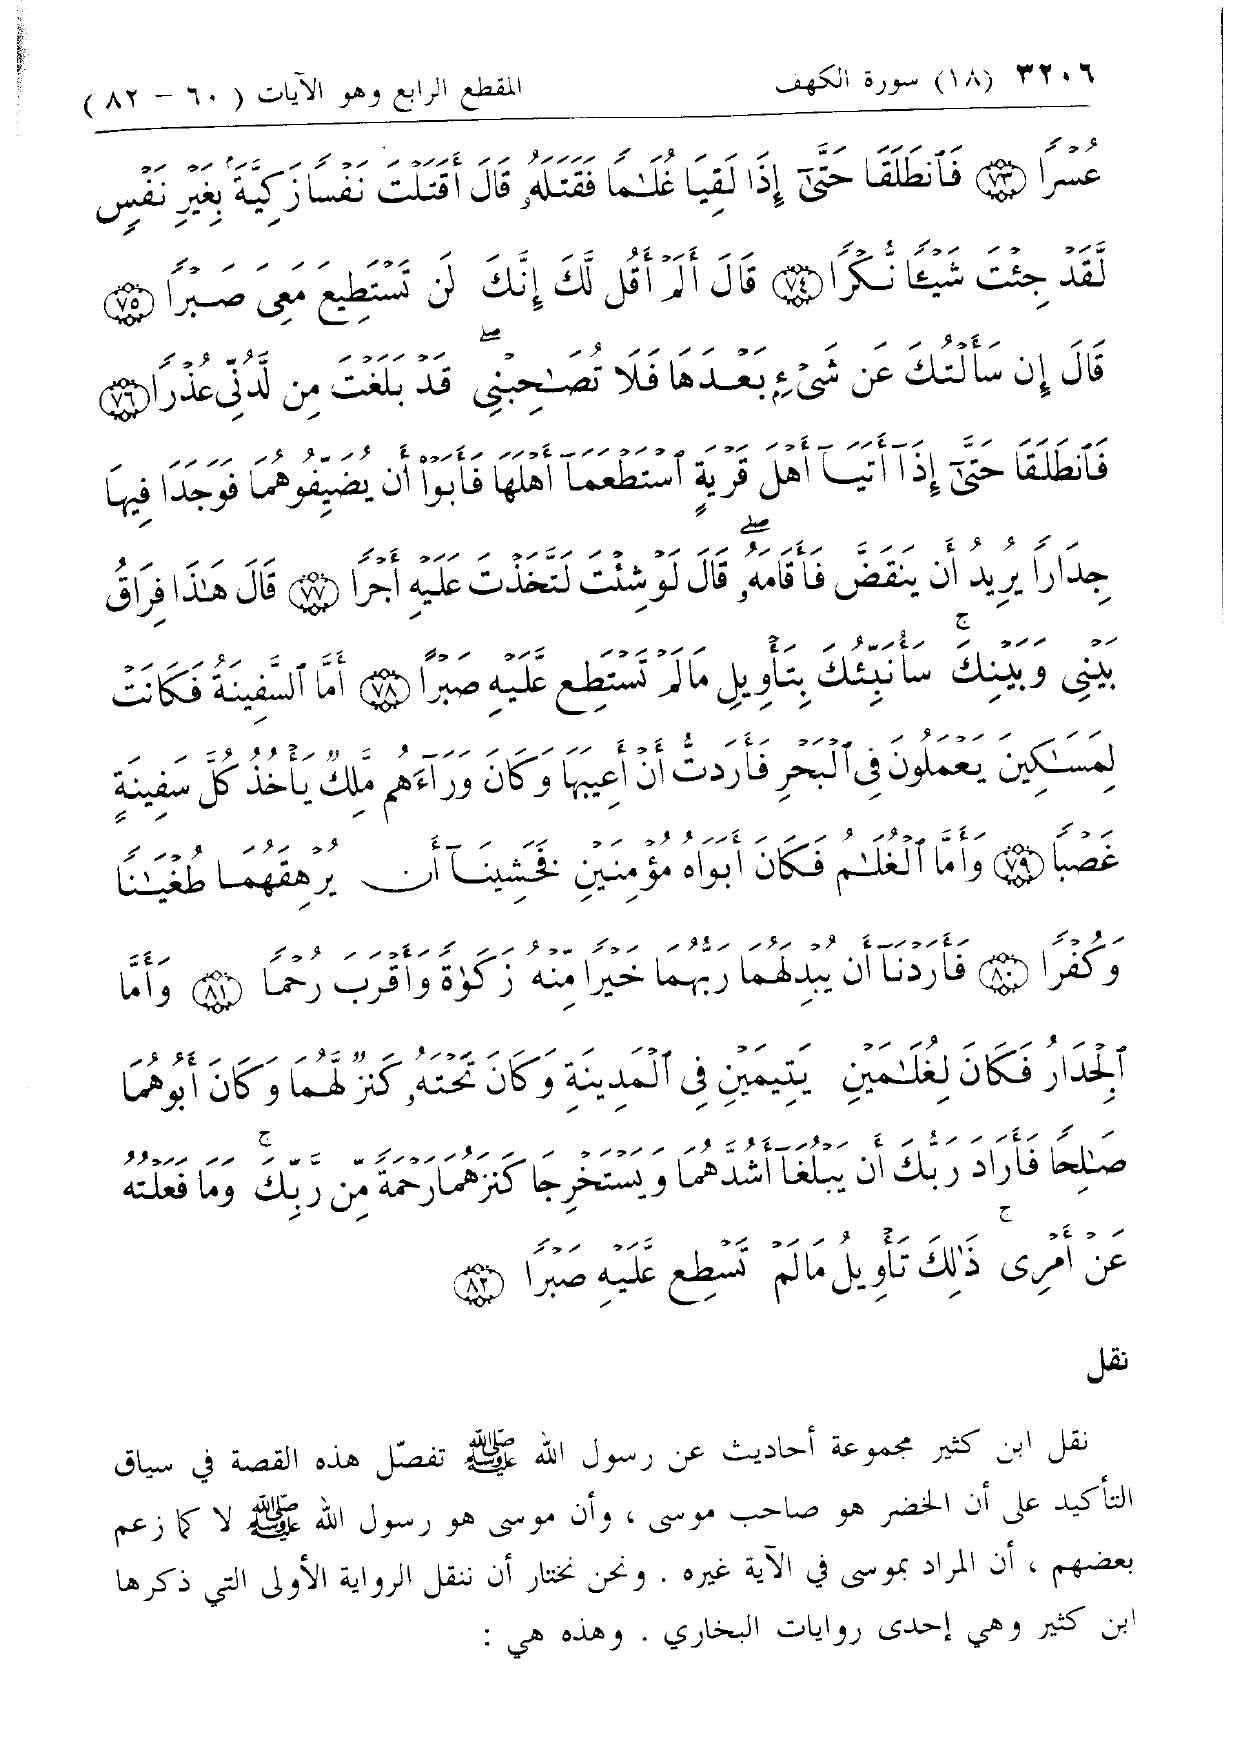 ٣٢٠٦ (١٨) سورة الكهف المقطع الرابع وهو الآيات ( ٦٠ – ٨٢ )
عُسْرًا ﴿٧٣﴾ فَٱنطَلَقَا حَتَّىٰٓ إِذَا لَقِيَا غُلَـٰمًا فَقَتَلَهُۥ قَالَ أَقَتَلْتَ نَفْسًا زَكِيَّةًۢ بِغَيْرِ نَفْسٍ
لَّقَدْ جِئْتَ شَيْـًٔا نُّكْرًا ﴿٧٤﴾ قَالَ أَلَمْ أَقُل لَّكَ إِنَّكَ لَن تَسْتَطِيعَ مَعِىَ صَبْرًا ﴿٧٥﴾
قَالَ إِن سَأَلْتُكَ عَن شَىْءٍۭ بَعْدَهَا فَلَا تُصَـٰحِبْنِى ۖ قَدْ بَلَغْتَ مِن لَّدُنِّى عُذْرًا ﴿٧٦﴾
فَٱنطَلَقَا حَتَّىٰٓ إِذَآ أَتَيَآ أَهْلَ قَرْيَةٍ ٱسْتَطْعَمَآ أَهْلَهَا فَأَبَوْا۟ أَن يُضَيِّفُوهُمَا فَوَجَدَا فِيهَا
جِدَارًا يُرِيدُ أَن يَنقَضَّ فَأَقَامَهُۥ ۖ قَالَ لَوْ شِئْتَ لَتَّخَذْتَ عَلَيْهِ أَجْرًا ﴿٧٧﴾ قَالَ هَـٰذَا فِرَاقُ
بَيْنِى وَبَيْنِكَ ۚ سَأُنَبِّئُكَ بِتَأْوِيلِ مَا لَمْ تَسْتَطِع عَّلَيْهِ صَبْرًا ﴿٧٨﴾ أَمَّا ٱلسَّفِينَةُ فَكَانَتْ
لِمَسَـٰكِينَ يَعْمَلُونَ فِى ٱلْبَحْرِ فَأَرَدتُّ أَنْ أَعِيبَهَا وَكَانَ وَرَآءَهُم مَّلِكٌ يَأْخُذُ كُلَّ سَفِينَةٍ
غَصْبًا ﴿٧٩﴾ وَأَمَّا ٱلْغُلَـٰمُ فَكَانَ أَبَوَاهُ مُؤْمِنَيْنِ فَخَشِينَآ أَن يُرْهِقَهُمَا طُغْيَـٰنًا
وَكُفْرًا ﴿٨٠﴾ فَأَرَدْنَآ أَن يُبْدِلَهُمَا رَبُّهُمَا خَيْرًا مِّنْهُ زَكَوٰةً وَأَقْرَبَ رُحْمًا ﴿٨١﴾ وَأَمَّا
ٱلْجِدَارُ فَكَانَ لِغُلَـٰمَيْنِ يَتِيمَيْنِ فِى ٱلْمَدِينَةِ وَكَانَ تَحْتَهُۥ كَنزٌ لَّهُمَا وَكَانَ أَبُوهُمَا
صَـٰلِحًا فَأَرَادَ رَبُّكَ أَن يَبْلُغَآ أَشُدَّهُمَا وَيَسْتَخْرِجَا كَنزَهُمَا رَحْمَةً مِّن رَّبِّكَ ۚ وَمَا فَعَلْتُهُۥ
عَنْ أَمْرِى ۚ ذَٰلِكَ تَأْوِيلُ مَا لَمْ تَسْطِع عَّلَيْهِ صَبْرًا ﴿٨٢﴾
نقل
نقل ابن كثير مجموعة أحاديث عن رسول الله ﷺ تفصّل هذه القصة في سياق
التأكيد على أن الخضر هو صاحب موسى ، وأن موسى هو رسول الله ﷺ لا كما زعم
بعضهم ، أن المراد بموسى في الآية غيره . ونحن نختار أن ننقل الرواية الأولى التي ذكرها
ابن كثير وهي إحدى روايات البخاري . وهذه هي :